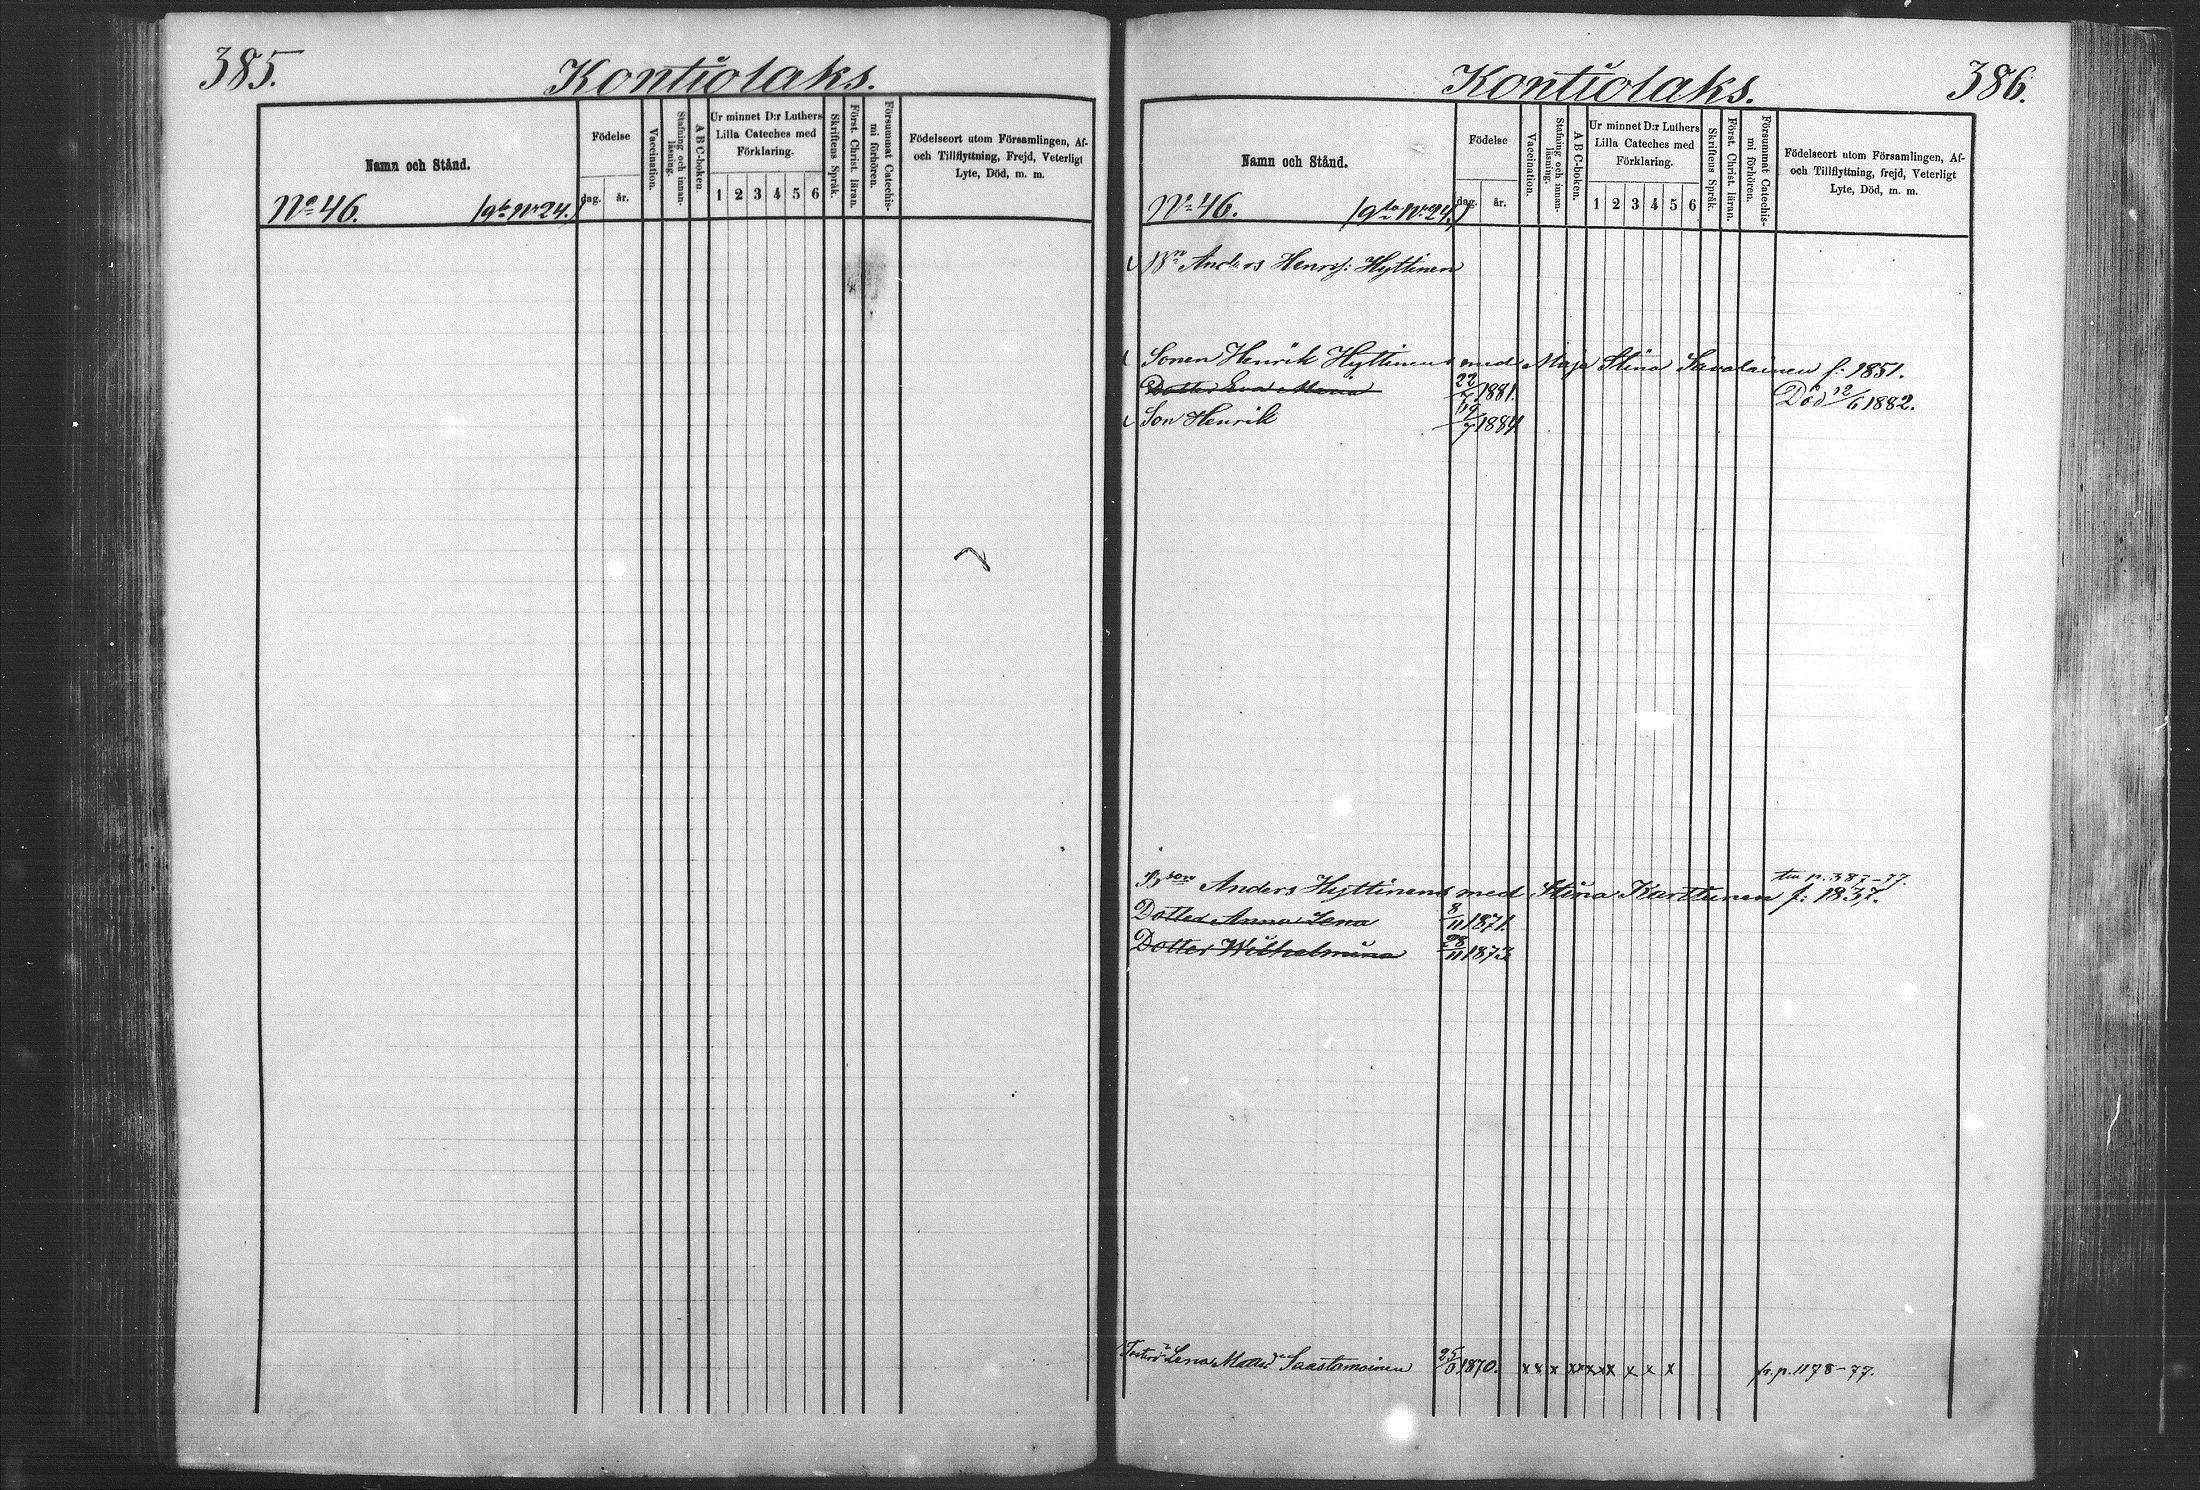 385.
Kontiolaks.
Namn och Stånd.
No 46.
Födelse
dag. år.
Vaccination.
Stafning och innan-läsning.
A B C-boken.
Ur minnet D:r Luthers Lilla Cateches med Förklaring.
1 2 3 4 5 6
Skriftens Språk.
Först. Christ. läran.
Försummat Catechis-mi förhören.
Födelseort utom Församlingen, Af-
och Tillflyttning, Frejd, Veterligt
Lyte, Död, m. m.
Kontiolaks.
386.
Namn och Stånd.
No 46.
Födelse
dag. år.
Vaccination.
Stafning och innan-läsning.
A B C-boken.
Ur minnet D:r Luthers Lilla Cateches med Förklaring.
1 2 3 4 5 6
Skriftens Språk.
Först. Christ. läran.
Försummat Catechis-mi förhören.
Födelseort utom Församlingen, Af-
och Tillflyttning, frejd, Veterligt
Lyte, Död, m. m.
Bn Anders Henrs: Hyttinen
Sonen Henrik Hyttinens med Maja Stina Savolainen f: 1851.
Dotter Eva Maria 22/7 1881. Död 12/6 1882.
Son Henrik 19/7 1884
tin p. 383-77.
Bson Anders Hyttinens med Stina Karttunen f: 1837.
Dotter Anna Lena 8/11 1871.
Dotter Wilhelmina 28/11 1873
Lena Saastamoinen 1870. x x x x x x x x x x fr. p. 1178-77.